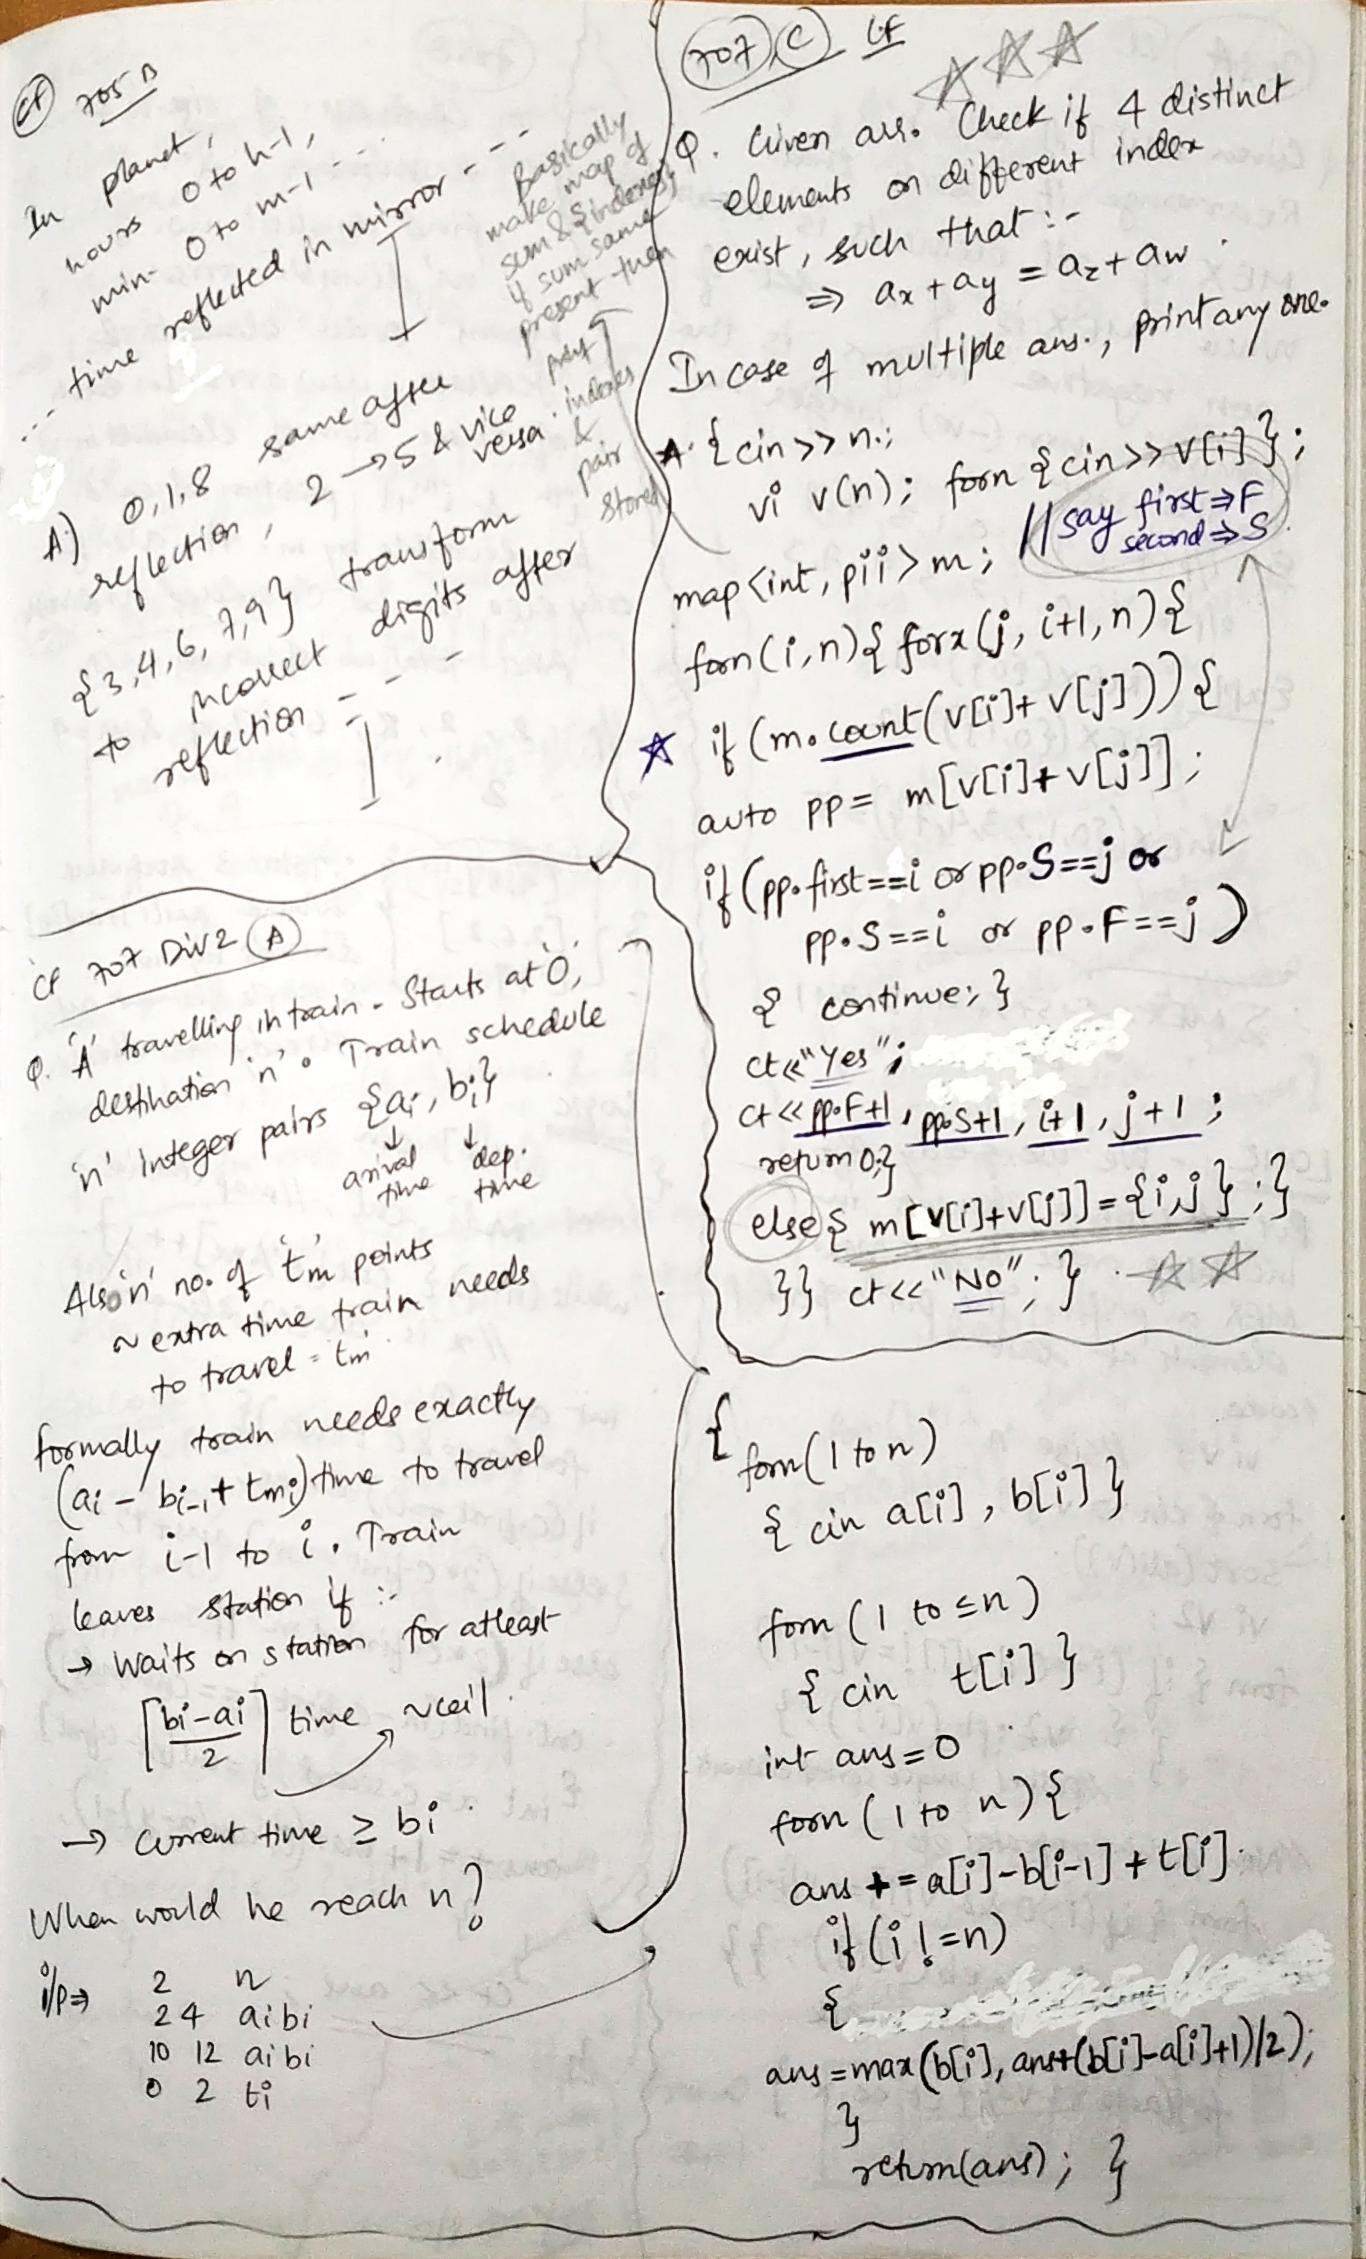 CF 705 B
In planet,
hours 0 to h-1,
min- 0 to m-1 - - -
... time reflected in mirror - - -
A.) 0,1,8 same after
reflection, 2 → 5 & vice
versa.
{3,4,6,7,9} transform
to incorrect digits after
reflection - - -
Basically
make map of
sum & indexes,
if sum same
present then
indexes
&
pair
stored
CF 707 Div2 A
Q. 'A' travelling in train. Starts at '0',
destination 'n'. Train schedule
'n' integer pairs {ai, bi}
arival
time
dep.
time
Also 'n' no. of 'tm' points
~ extra time train needs
to travel = tm
formally train needs exactly
(ai - bi-1 + tmi) time to travel
from i-1 to i. Train
leaves station if :-
→ Waits on station for atleast
⌈bi-ai/2⌉ time ~ceil.
→ current time ≥ bi
When would he reach n?
i/p⇒ 2 n
2 4 ai bi
10 12 ai bi
0 2 ti
707 C CF
Q. Given arr. Check if 4 distinct
elements on different index
exist, such that :-
⇒ ax + ay = az + aw.
In case of multiple ans., print any one.
A. {cin>>n;
vi v(n); forn {cin>>v[i]};
//say first⇒F
second⇒S.
map<int, pii> m;
forn(i,n){ forx(j, i+1, n){
if (m.count(v[i]+v[j])){
auto pp = m[v[i]+v[j]];
if(pp.first==i or pp.S==j or
pp.S==i or pp.F==j)
{ continue; }
ct<<"Yes";
ct<<pp.F+1, pp.S+1, i+1, j+1;
return 0;}
else{ m[v[i]+v[j]]={i,j};}
}} ct<<"No"; }
{
forn(1 to n)
{ cin a[i], b[i] }
forn (1 to ≤n)
{ cin t[i] }
int ans=0
forn (1 to n) {
ans += a[i]-b[i-1]+t[i].
if(i!=n)
{
ans=max(b[i], ans+(b[i]-a[i]+1)/2);
}
return(ans); }